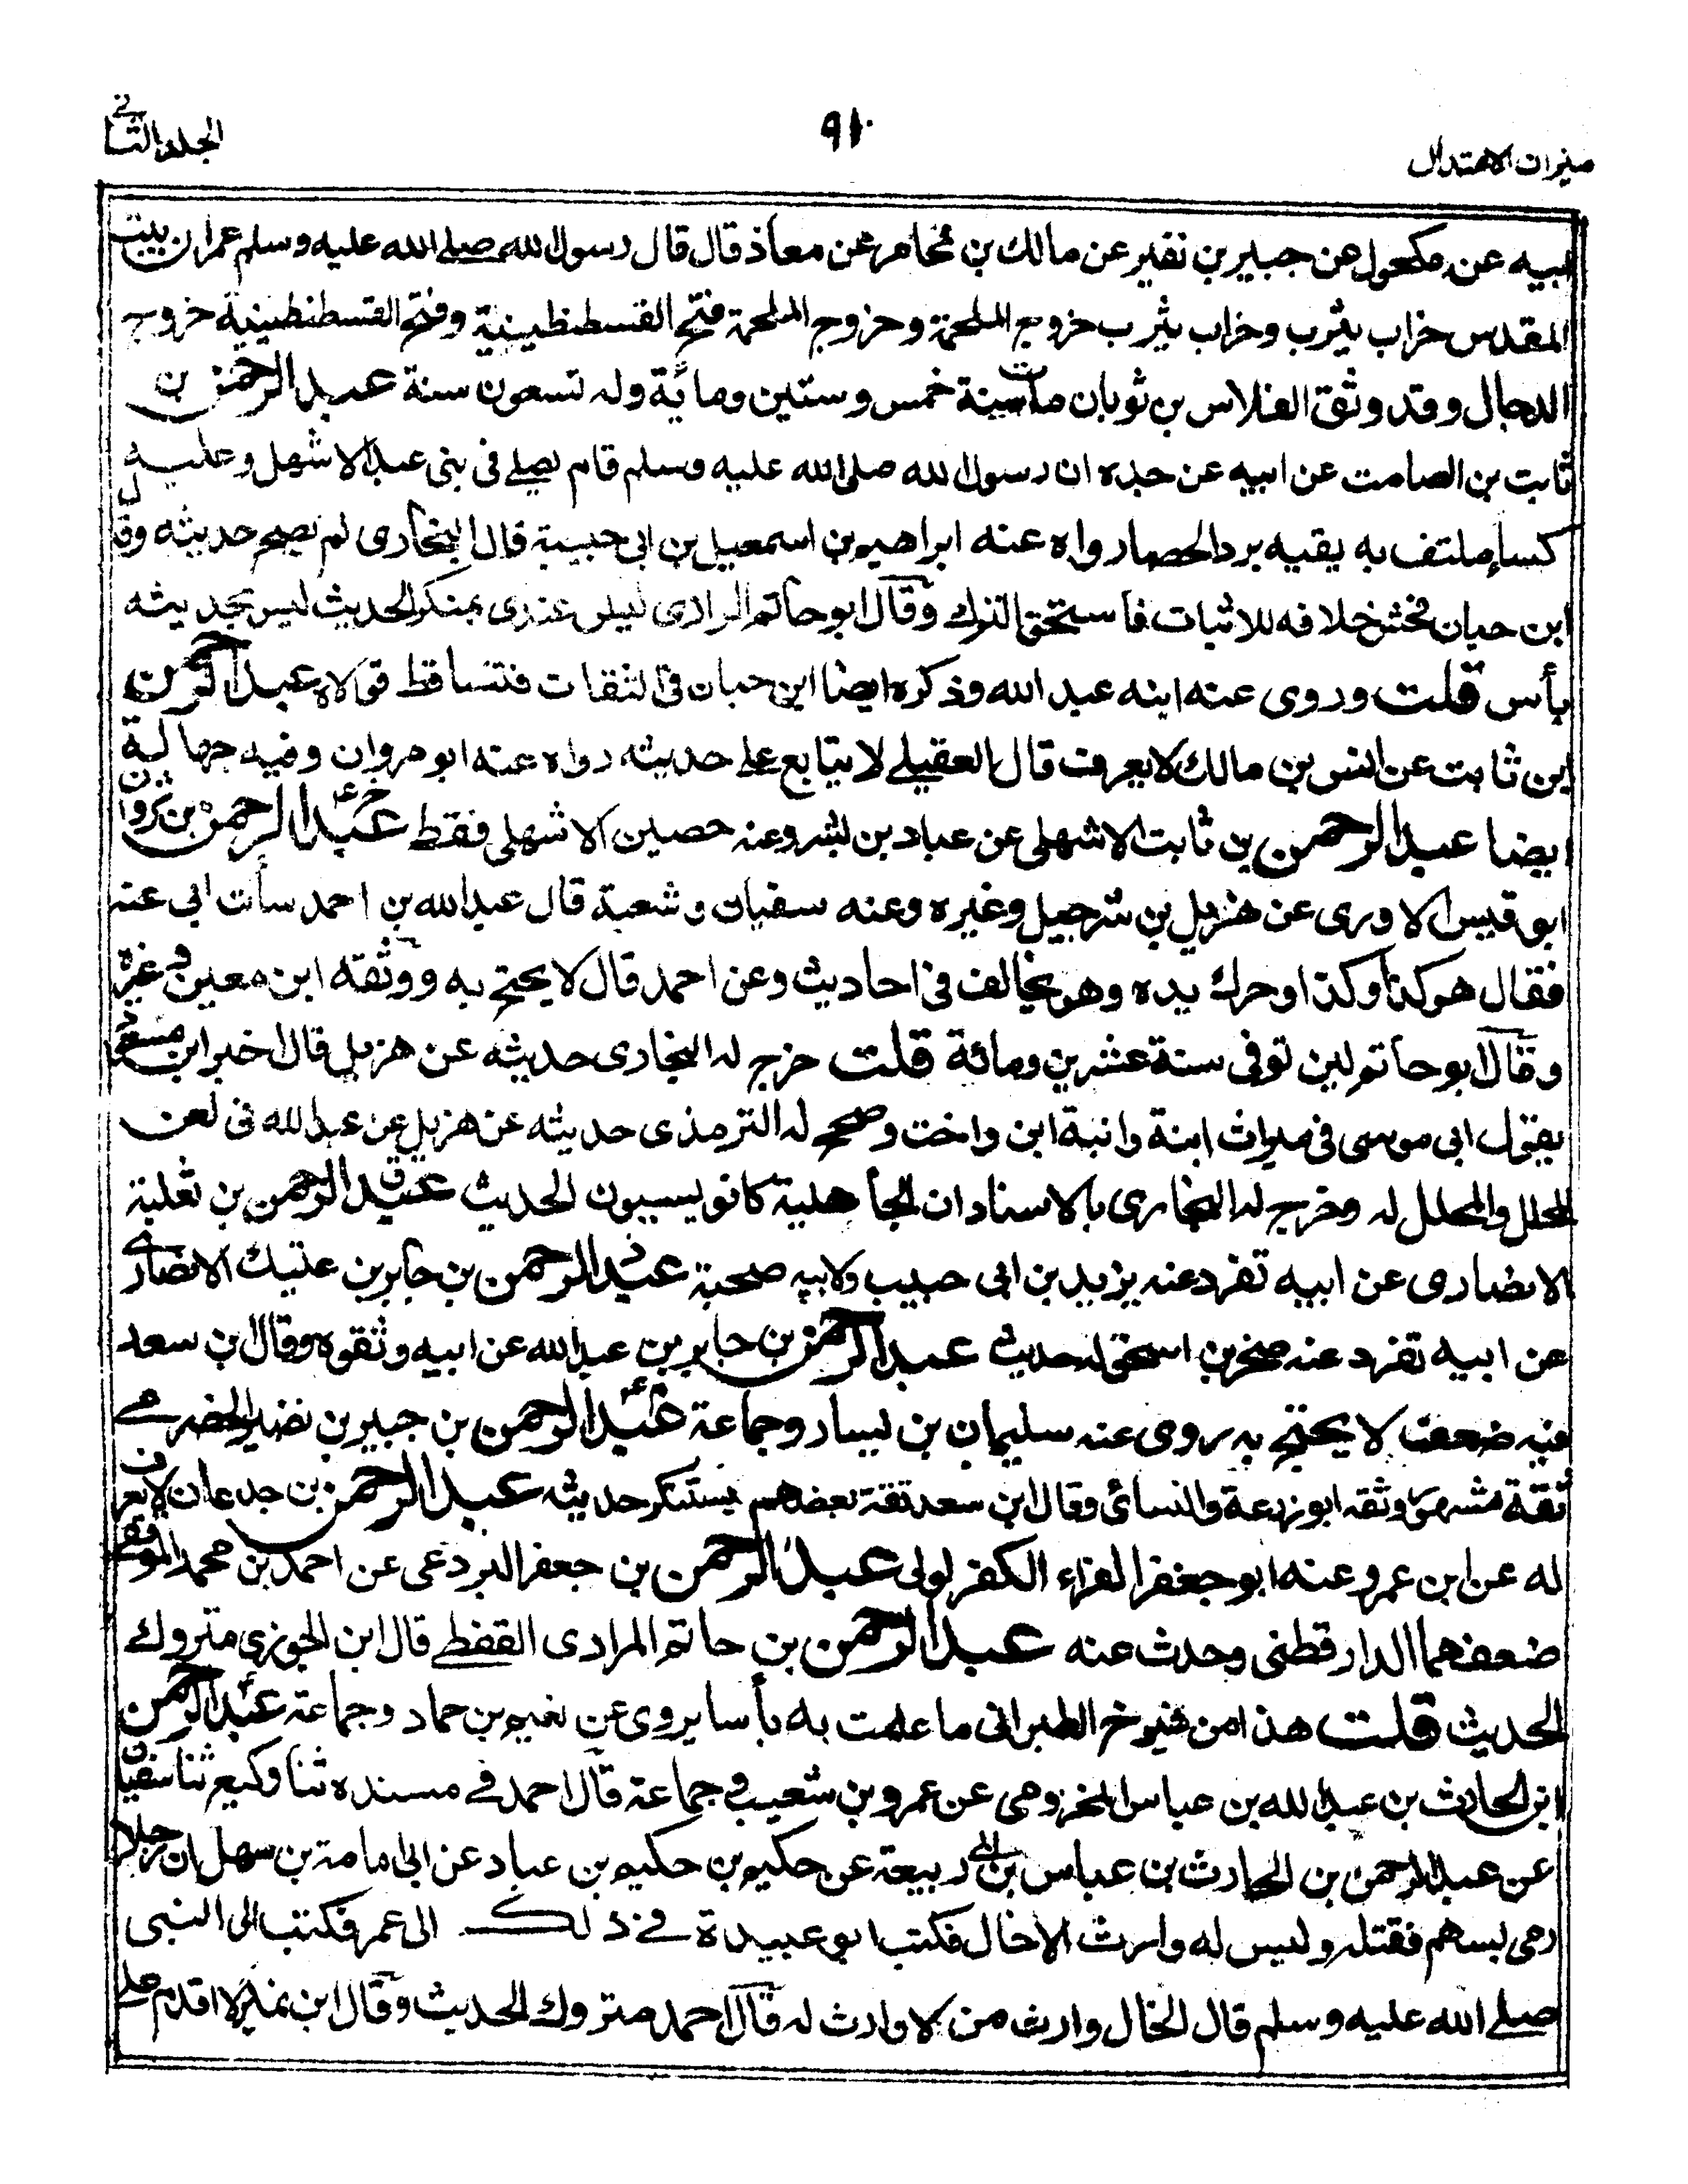 ميزان الاعتدال
٩١٠
الجلد الثانی
ابيه عن مكحول عن جبير بن نفير عن مالك بن يخامر عن معاذ قال قال رسول الله صلے الله عليه وسلم عمران بيت
المقدس خراب يثرب وخراب يثرب خروج الملحمة وخروج الملحمة فتح القسطنطينية وفتح القسطنطينية خروج
الدجال وقد وثق الفلاس بن ثوبان مات سنة خمس وستين ومائة وله تسعون سنة عبد الرحمن بن
ثابت بن الصامت عن ابيه عن جده ان رسول الله صلى الله عليه وسلم قام يصلے فی بنی عبد الاشهل وعليه
كساء ملتف به يقيه برد الحصار رواه عنه ابراهيم بن اسمعيل بن ابی حبيبة قال البخاری لم يصح حديثه وقال
ابن حبان فحش خلافه للاثبات فاستحق الترك وقال ابو حاتم الرازی ليس عندی بمنكر الحديث ليس بحديثه
بأس قلت وروی عنه ابنه عبد الله وذكره ايضا ابن حبان فی الثقات فتساقط قولاه عبد الرحمن
بن ثابت عن انس بن مالك لا يعرف قال العقيلے لا يتابع علے حديثه رواه عنه ابو مروان وفيه جهالة
ايضا عبد الرحمن بن ثابت الاشهلی عن عباد بن بشر وعنه حصين الاشهلی فقط عبد الرحمن بن ثروان
ابو قيس الاودی عن هزيل بن شرحبيل وغيره وعنه سفيان وشعبة قال عبد الله بن احمد سألت ابی عنه
فقال هو كذا وكذا وحرك يده وهو يخالف فی احاديث وعن احمد قال لا يحتج به ووثقه ابن معين وغيره
وقال ابو حاتم لين توفی سنة عشرين ومائة قلت خرج له البخاری حديثه عن هزيل قال اخبر ابن مسعود
بقول ابی موسی فی ميراث ابنة وابنة ابن واخت وصحح له الترمذی حديثه عن هزيل عن عبد الله فی لعن
المحلل والمحلل له وخرج له البخاری بالاسناد ان الجأهلية كانو يسيبون الحديث عبد الرحمن بن ثعلبة
الانصاری عن ابيه تفرد عنه يزيد بن ابی حبيب ولابيه صحبة عبد الرحمن بن جابر بن عتيك الانصاری
عن ابيه تفرد عنه صخر بن اسحق له حديث عبد الرحمن بن جابر بن عبد الله عن ابيه وثقوه وقال ابن سعد
فيه ضعف لا يحتج به روی عنه سليمان بن يسار وجماعة عبد الرحمن بن جبير بن نفير الحضرمے
ثقة مشهور وثقه ابو زرعة والنسائی وقال ابن سعد ثقة بعضهم يستنكر حديثه عبد الرحمن بن جدعان لا يعرف
له عن ابن عمر وعنه ابو جعفر الفراء الكفرلولی عبد الرحمن بن جعفر البردعی عن احمد بن محمد
ضعفهما الدارقطنی وحدث عنه عبد الرحمن بن حاتم المرادی القفطے قال ابن الجوزی متروك
الحديث قلت هذا من شيوخ الطبرانی ما علمت به بأسا يروی عن نعيم بن حماد وجماعة عبد الرحمن
ابن الحارث بن عبد الله بن عباس المخزومی عن عمرو بن شعيب وجماعة قال احمد فے مسنده ثنا وكيع ثنا سفيان
عن عبد الرحمن بن الحارث بن عباس بن ابی ربيعة عن حكيم بن حكيم بن عباد عن ابی امامة بن سهل ان رجلا
رمی بسهم فقتله وليس له وارث الا خال فكتب ابو عبيدة فے ذلك الی عمر فكتب الی النبی
صلے الله عليه وسلم قال الخال وارث من لا وارث له قال احمد متروك الحديث وقال ابن نمير لا اقدم علے